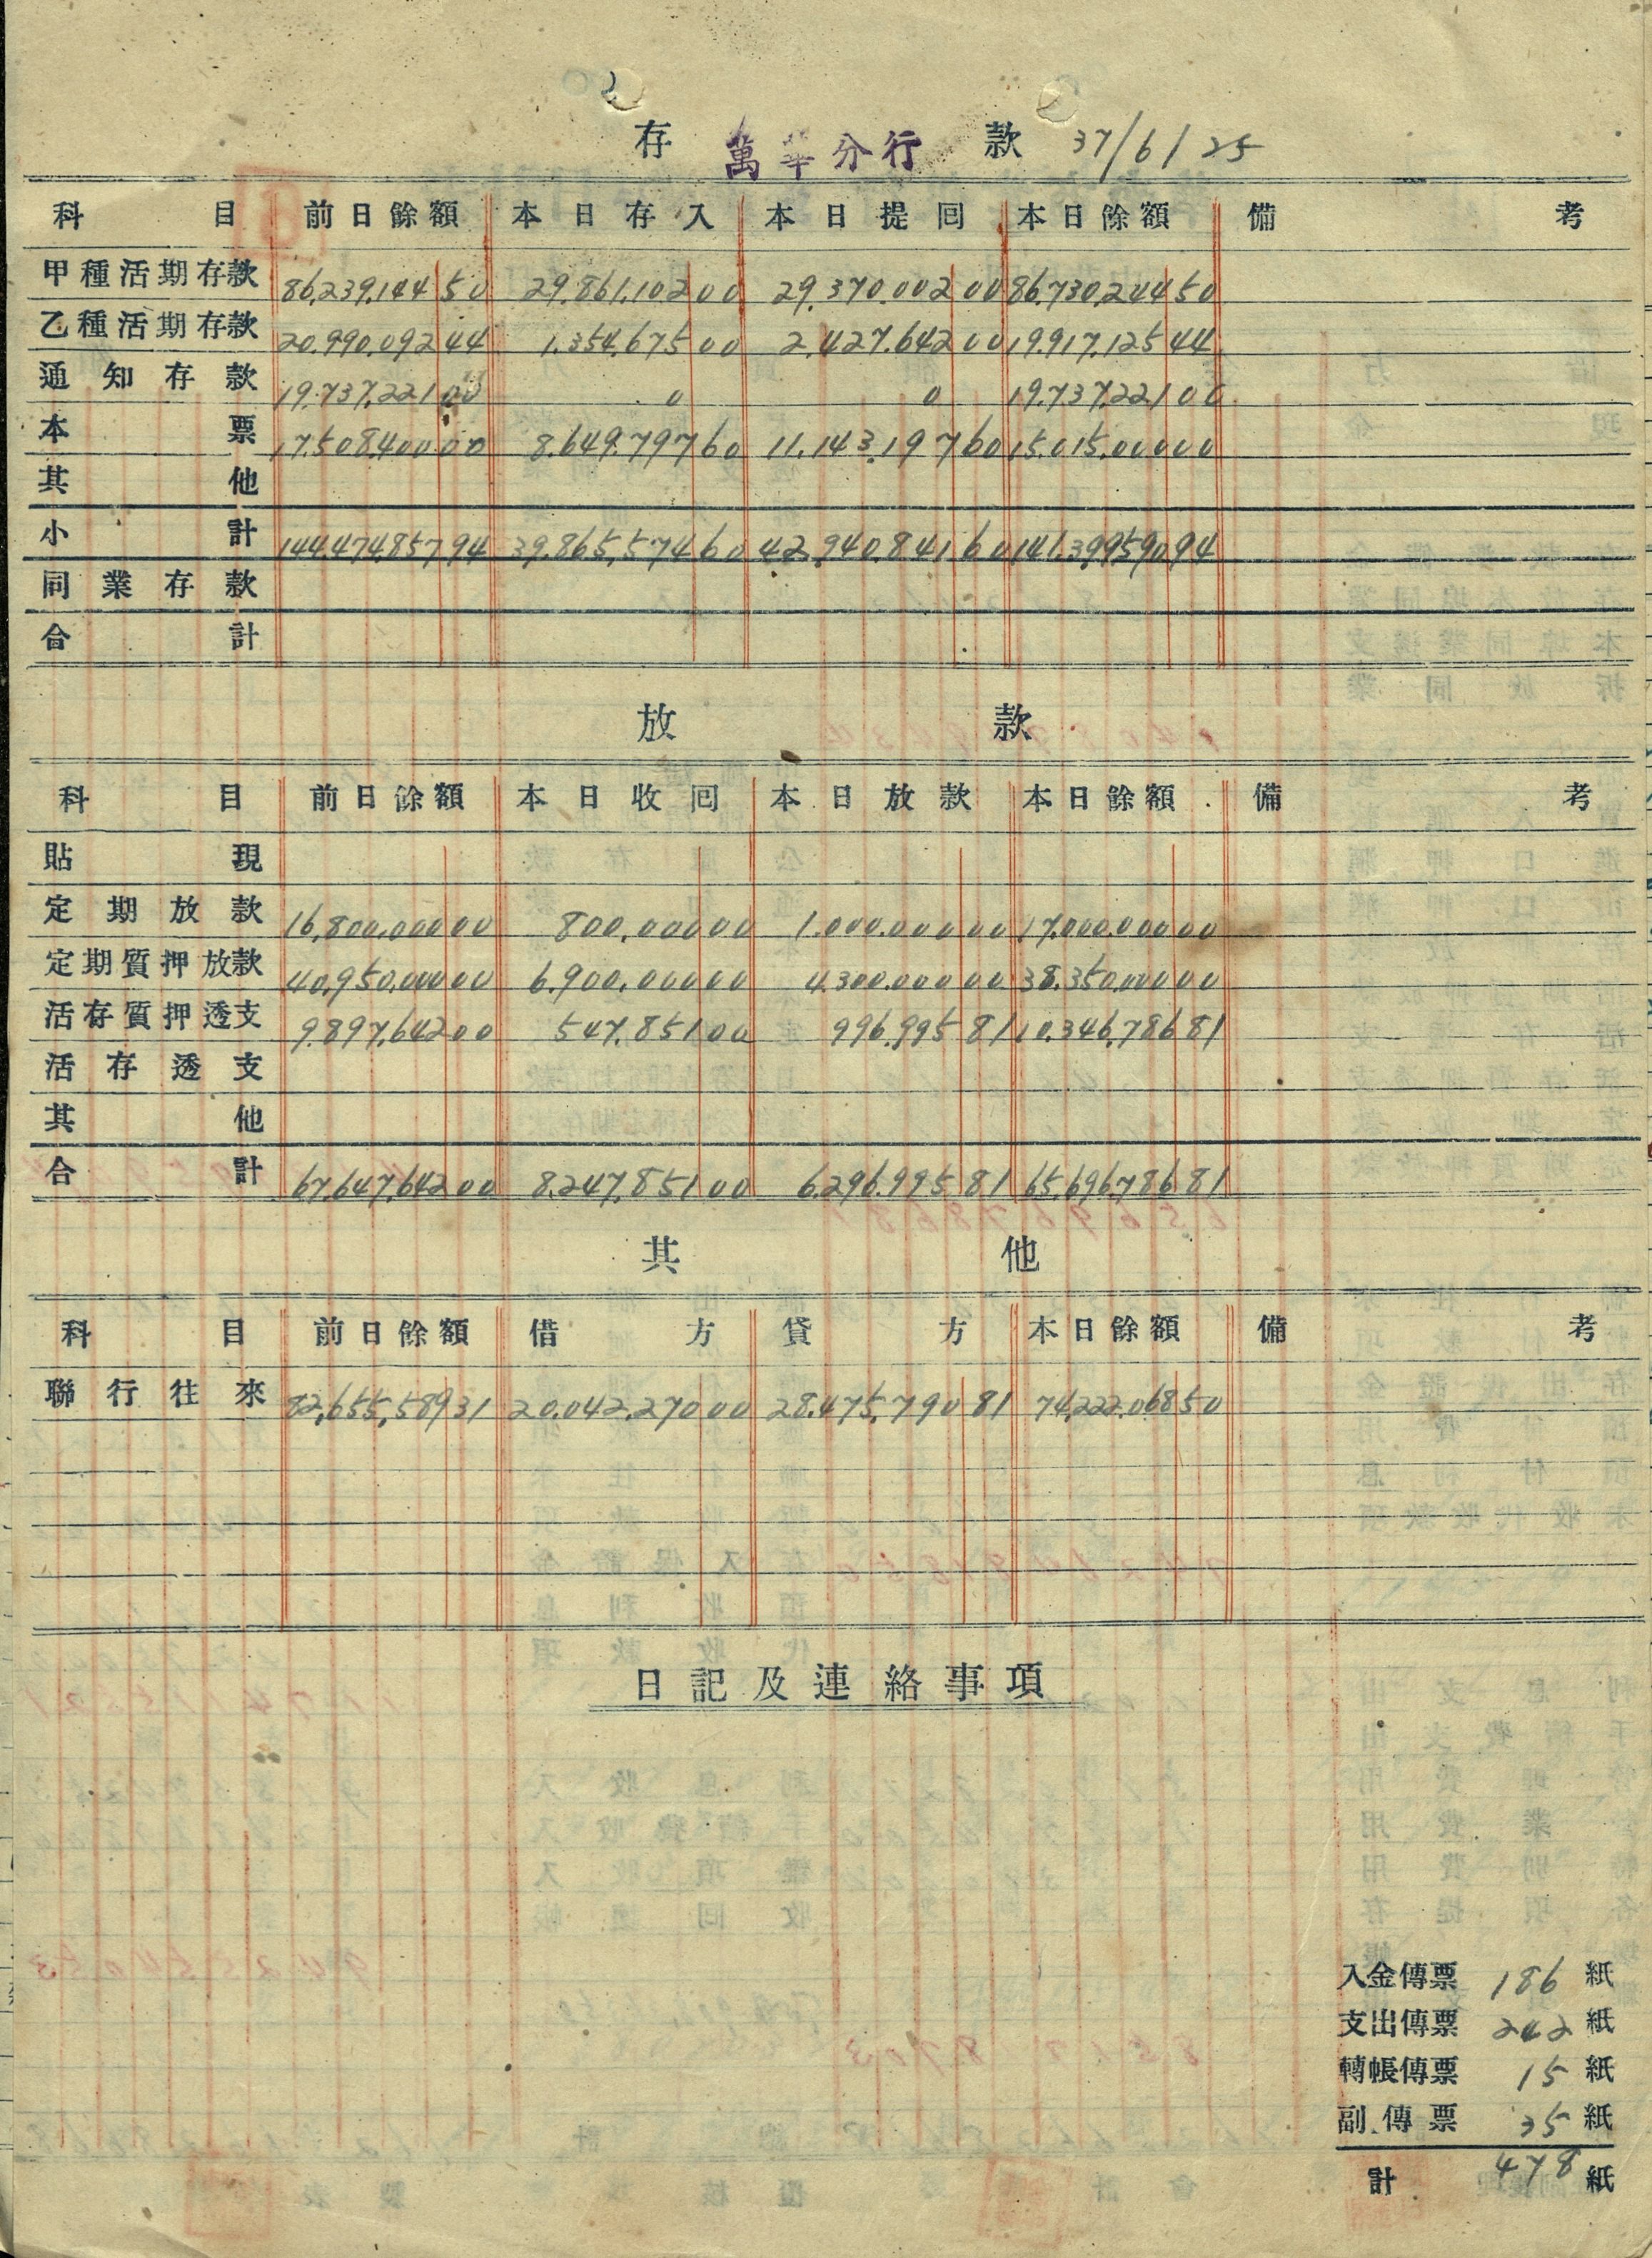 存 萬華分行 款 37/6/25
科目 前日餘額 本日存入 本日提回 本日餘額 備考
甲種活期存款 86,239,144 50 29.861,102 00 29.370.002 00 86.730,244 50
乙種活期存款 20.990.092 44 1.354.675 00 2.427.642 00 19.917.125 44
通知存款 19.737.221 00 0 0 19.737.221 00
本票 17.508.400 00 8.649.797 60 11.143.197 60 15.015.000 00
其他
小計 144.474.857 94 39.865,574 60 42.940.841 60 141.399.590 94
同業存款
合計
放款
科目 前日餘額 本日收回 本日放款 本日餘額 備考
貼現
定期放款 16,800,000 00 800,000 00 1.000.000 00 17.000.000 00
定期質押放款 40,950,000 00 6.900,000 00 4.300.000 00 38.350.000 00
活存質押透支 9.897.642 00 547,851 00 996.995 81 10.346.786 81
活存透支
其他
合計 67.647.642 00 8.247.851 00 6.296.995 81 65.696.786 81
其他
科目 前日餘額 借方 貸方 本日餘額 備考
聯行往來 82,655,589 31 20.042.270 00 28.475.790 81 74.222.068 50
日記及連絡事項
入金傳票 186 紙
支出傳票 242 紙
轉帳傳票 15 紙
副傳票 35 紙
計 478 紙